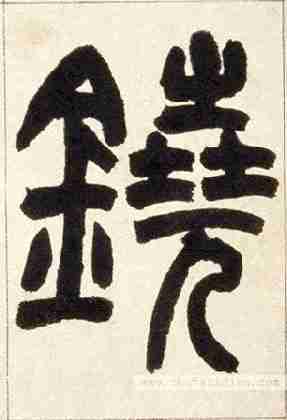 鐃
www.shufazidian.com